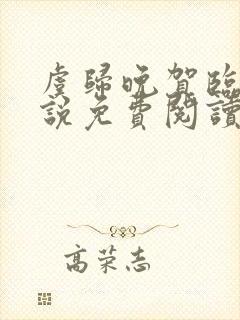 虞歸晚賀臨
說免費閱讀
高荣志